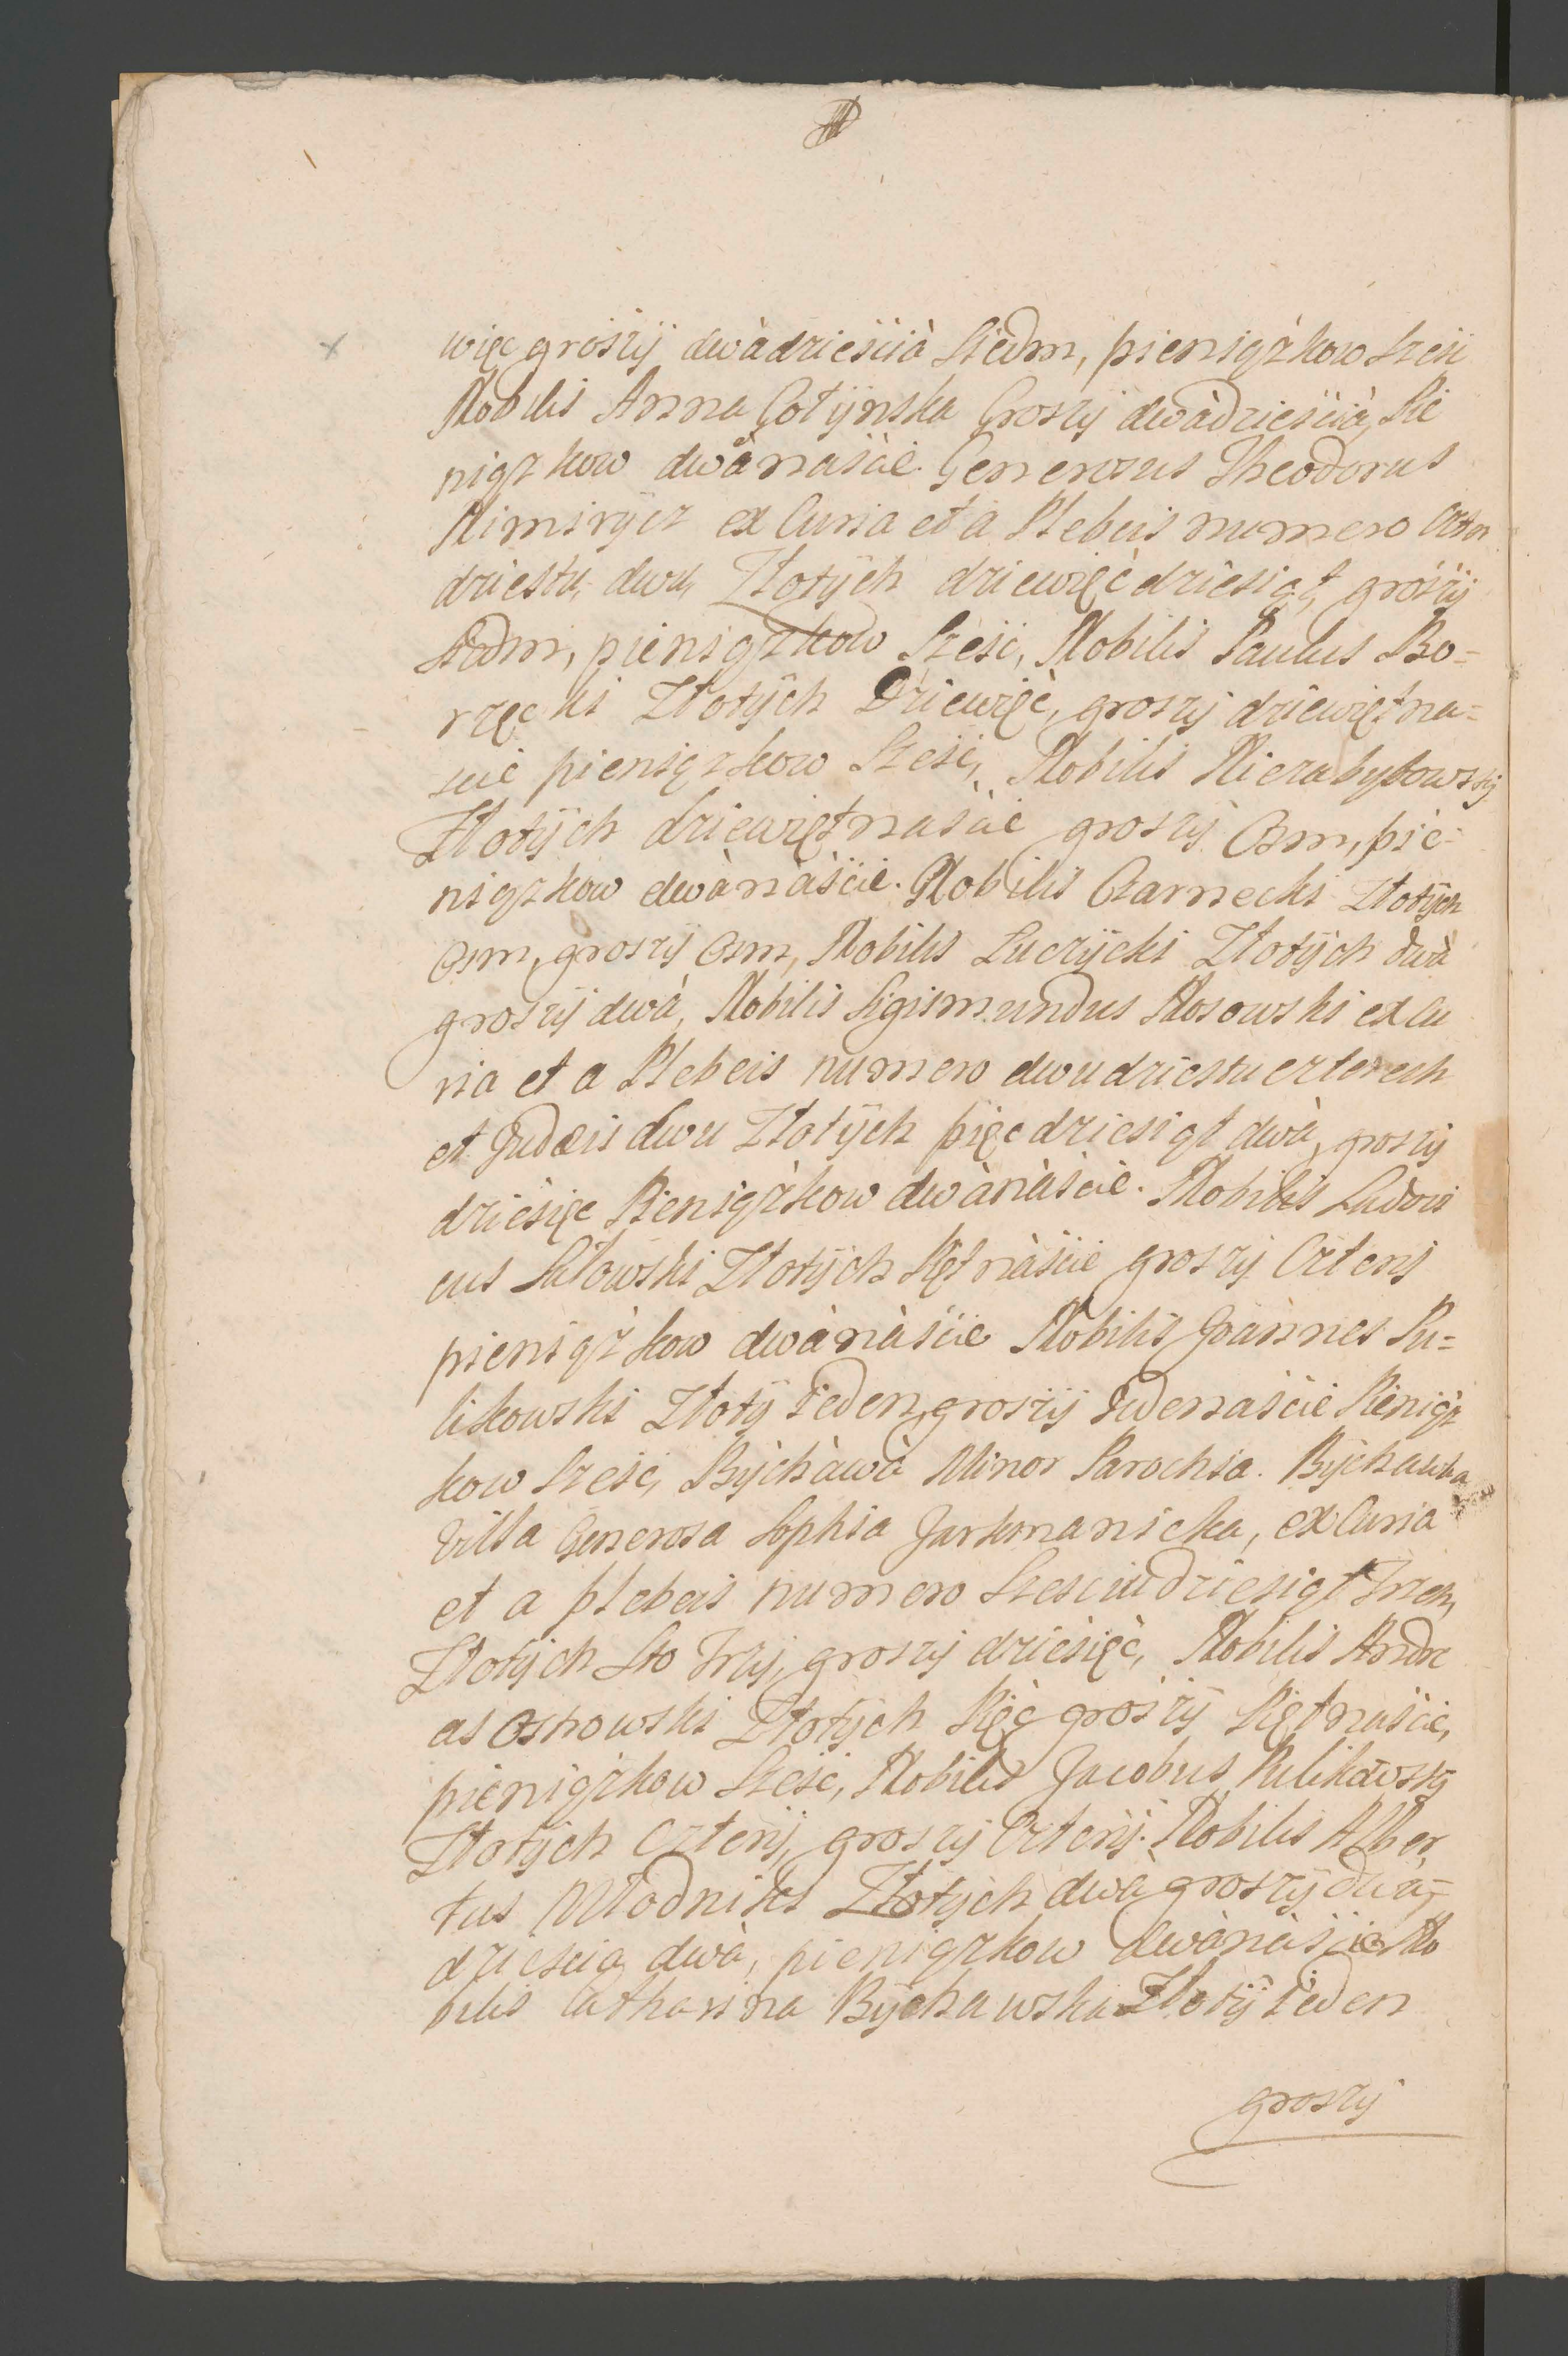 więc groszÿ dwàdzieścià Siedm, pieniązkow Szesc
Nobilis Anna Gotÿnska Groszÿ dwàdzieścià, Pie
niązkow dwànaście. Generosus Theodorus
Nimirÿcz ex Curia et a Plebeis numero Czter
dziestu dwu, Złotÿch dziewięćdziesiąt, groszÿ
Siedm, pieniązkow Szesc, Nobilis Paulus Bo=
rzęcki Złotÿch Dziewięć, groszÿ dziewiętna=
scie pieniązkow Szesc, Nobilis Niezabytowskÿ
Złotÿch dziewiętnaście groszÿ Osm, pie=
niązkow dwànàście. Nobilis Czarnecki Złotÿch
Osm, groszÿ Osm, Nobilis Luczÿcki Złotÿch dwà
groszÿ dwà, Nobilis Sigismundus Kosowski ex Cu
ria et a Plebeis numero dwudziestu czterech
et Judæis dwu Złotÿch pięcdziesiąt dwà, groszÿ
dziesięc Pieniązkow dwànàście. Nobilis Ludovi
cus Sułowski Złotÿch Piętnàście groszÿ Czterÿ
pieniążkow dwànàście Nobilis Joannes Pu=
likowski Złotÿ ieden, groszÿ Iedenaście Pieniąz
kow Szesc, Bÿchàwà Minor Parochia. Bÿchawka
Villa Generosa Sophia Jarkmanicka, ex Curia
et a plebeis numero Szescudziesiąt Trzech,
Złotÿch Sto Trzÿ, groszÿ dziesięć, Nobilis Andre
as Osnowski Złotÿch Pięć groszÿ Piętnaście,
pieniązkow Szesc, Nobilis Jacobus Pulikowskÿ
Złotÿch Czterÿ, groszÿ Czterÿ. Nobilis Alber
tus Młodnicki Złotÿch dwà groszÿ dwà=
dziescia dwà, pieniązkow dwànàście No
bilis Catharina Bÿchawska Złotÿ ieden
groszÿ